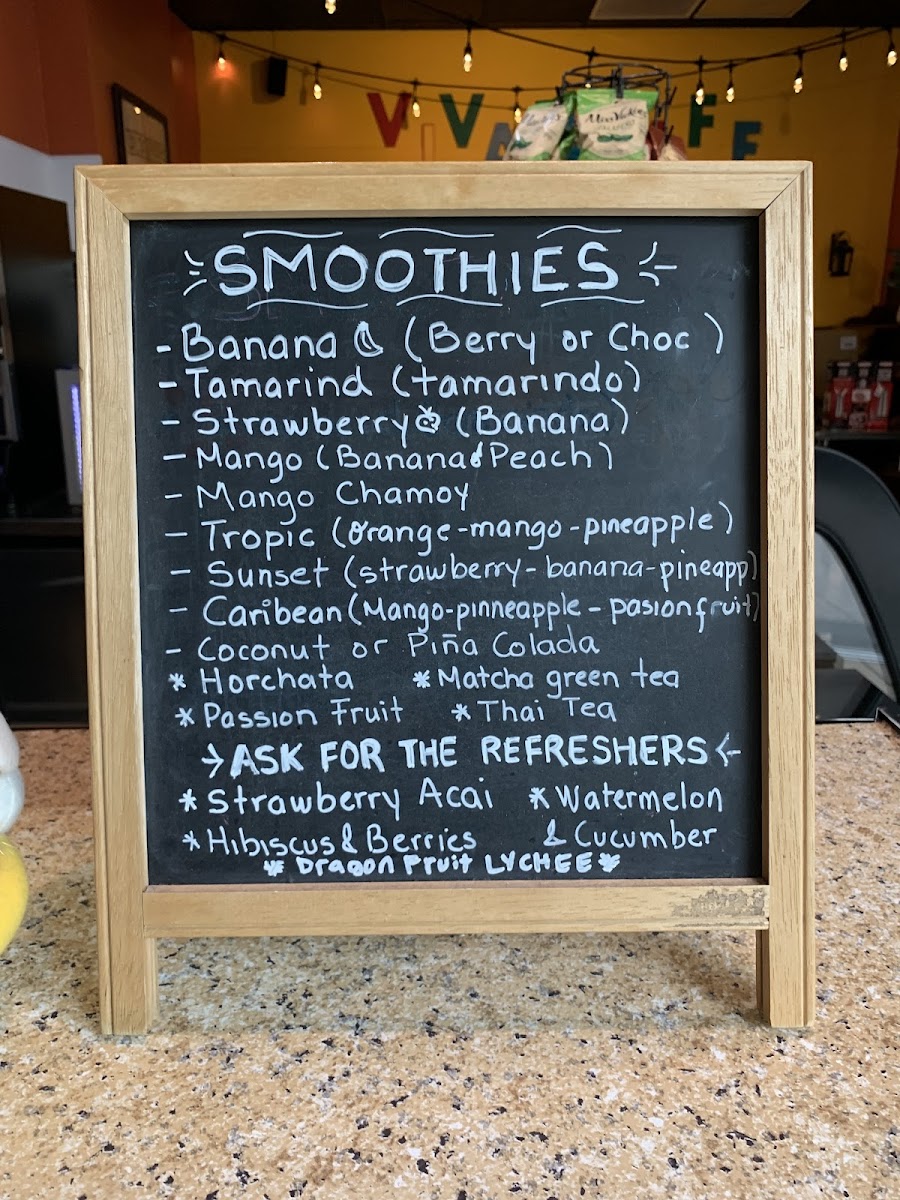 VIVA
FE
Miss Vickie's
JALAPEÑO
SMOOTHIES
- Banana (Berry or Choc )
- Tamarind (tamarindo)
- Strawberry (Banana)
- Mango (Banana & Peach)
- Mango Chamoy
- Tropic (orange-mango-pineapple)
- Sunset (strawberry-banana-pineapp)
- Caribean (Mango-pinneapple-pasionfruit)
- Coconut or Piña Colada
* Horchata * Matcha green tea
* Passion Fruit * Thai Tea
→ ASK FOR THE REFRESHERS ←
* Strawberry Acai * Watermelon
* Hibiscus & Berries & Cucumber
* Dragon Fruit LYCHEE *